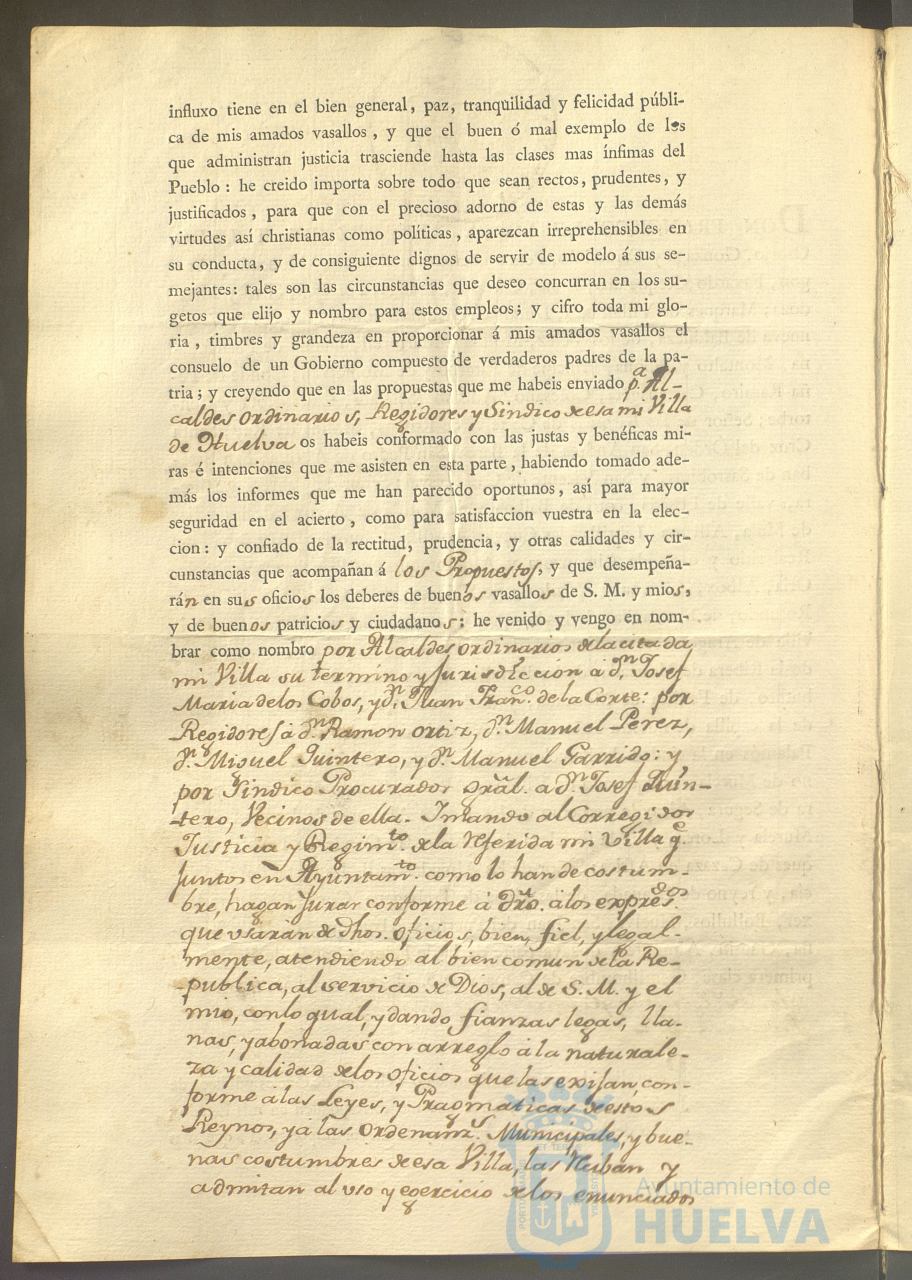 influxo tiene en el bien general, paz, tranquilidad y felicidad públi-
ca de mis amados vasallos, y que el buen ó mal exemplo de los
que administran justicia trasciende hasta las clases mas ínfimas del
Pueblo: he creido importa sobre todo que sean rectos, prudentes, y
justificados, para que con el precioso adorno de estas y las demás
virtudes así christianas como políticas, aparezcan irreprehensibles en
su conducta, y de consiguiente dignos de servir de modelo á sus se-
mejantes: tales son las circunstancias que deseo concurran en los su-
getos que elijo y nombro para estos empleos; y cifro toda mi glo-
ria, timbres y grandeza en proporcionar á mis amados vasallos el
consuelo de un Gobierno compuesto de verdaderos padres de la pa-
tria; y creyendo que en las propuestas que me habeis enviado pª. Al-
caldes ordinarios, Regidores y Sindico de esa mi Villa
de Huelva os habeis conformado con las justas y benéficas mi-
ras é intenciones que me asisten en esta parte, habiendo tomado ade-
más los informes que me han parecido oportunos, así para mayor
seguridad en el acierto, como para satisfaccion vuestra en la elec-
cion: y confiado de la rectitud, prudencia, y otras calidades y cir-
cunstancias que acompañan á los Propuestos, y que desempeña-
rán en sus oficios los deberes de buenos vasallos de S. M. y mios,
y de buenos patricios y ciudadanos: he venido y vengo en nom-
brar como nombro por Alcaldes ordinarios de la citada
mi Villa su termino y Jurisdiccion a dn. Josef
Maria de los Cobos, y dn. Juan Franco. de la Corte: por
Regidores á dn. Ramon Ortiz, dn. Manuel Perez,
dn. Miguel Quintero, y dn. Manuel Garrido: y
por Sindico Procurador gral. a dn. Josef Quin-
tero, Vecinos de ella. Imando al Corregidor
Justicia y Regimto. de la referida mi Villa qe.
juntos en Ayuntamto. como lo han de costum-
bre, hagan jurar conforme á dro. á los expresdos.
que usarán de dhos. oficios, bien, fiel, y legal-
mente, atendiendo al bien comun de la Re-
publica, al servicio de Dios, al de S. M. y el
mio, con lo qual, y dando fianzas legas, lla-
nas, y abonadas con arreglo á la naturale-
za y calidad de los oficios que las exijan, con-
forme á las Leyes, y Pragmaticas de estos
Reynos, y á las ordenanzs. Municipales, y bue-
nas costumbres de esa Villa, las reciban y
admitan al uso y egercicio de los enunciados
Ayuntamiento de
HUELVA